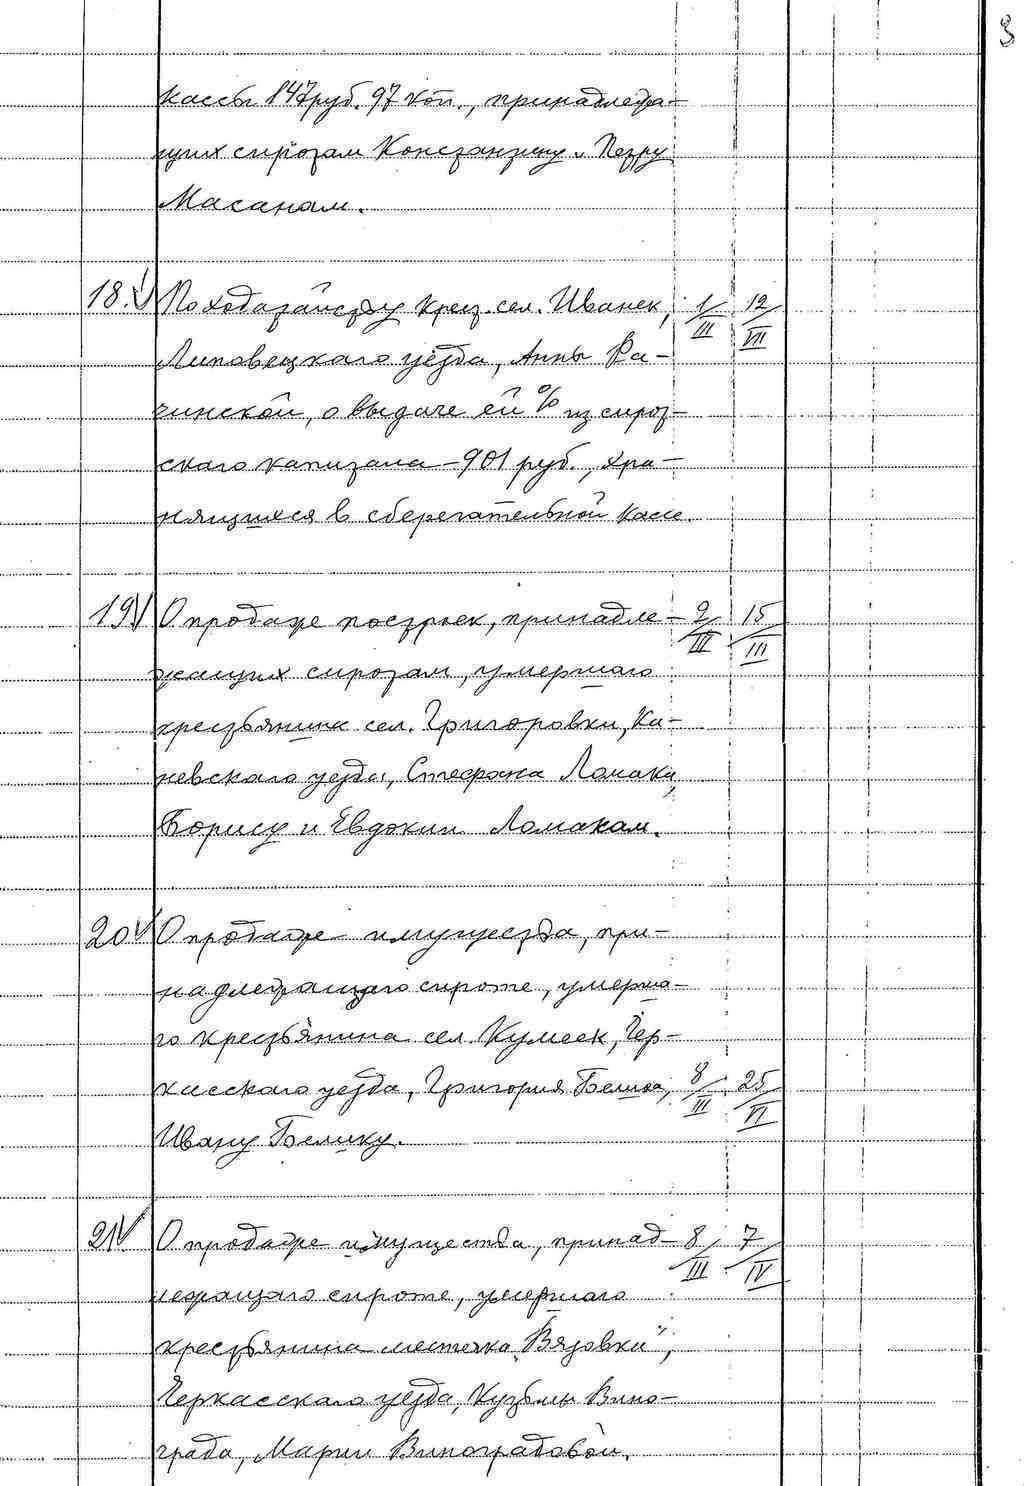 3
кассы 847 руб. 97 коп., принадлежа-
щих сиротам Константину и Петру
Масанам.
18. По ходатайству крест. сел. Иванек, 1/III 12/VII
Липовецкаго уезда, Анны Ра-
чинской, о выдаче ей % из сирот-
скаго капитала - 901 руб., хра-
нящихся в сберегательной кассе.
19 О продаже построек, принадле- 2/III 15/III
жащих сиротам, умершаго
крестьянина сел. Григоровки, Ка-
невскаго уезда, Стефана Ломаки,
Борису и Евдокии Ломакам.
20 О продаже имущества, при-
надлежащаго сироте, умерша-
го крестьянина сел. Кумеек, Чер-
касскаго уезда, Григория Белика, 8/III 25/VI
Ивану Белику.
21 О продаже имущества, принад- 8/III 7/IV
лежащаго сироте, умершаго
крестьянина местечка "Вязовки",
Черкасскаго уезда, Кузьмы Вино-
града, Марии Виноградовой.